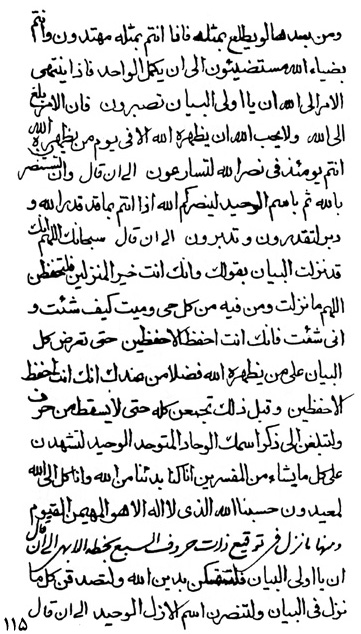 ومن بعد هالو يطلع بمثله فاذا انتم بمثله مهتدون وانتم
بضياء الله مستضيئون الى ان يكمل الواحد فاذا ينتهى
الامر الى الله ان يا اولى البيان تصبرون فان الامر بلغ
الى الله ولا يحب الله ان يظهره الله الا فى يوم من يظهره الله
انتم يومئذ فى نصر الله لتسارعون الى ان قال وان تستنصر
بالله ثم باسم الوحيد لينصركم الله اذا انتم بما قد قدر الله و
دبر لتقدرون و تدبرون الى ان قال سبحانك اللهم انك
قد نزلت البيان بقولك وانك انت خير المنزلين فلتحفظن
اللهم ما نزلت ومن فيه من كل حى وميت كيف شئت و
انى شئت فانك انت احفظ الاحفظين حتى تعرض كل
البيان على من يظهره الله فضلا من عندك انك انت احفظ
الاحفظين و قبل ذلك تجمعن كله حتى لا يسقط من حرف
ولتبلغن الى ذكر اسمك الوحاد المتوحد الوحيد لتشهدن
على كل ما يشاء من المفسرين انا كنا بدئنا من الله وانا كل الى الله
لمعيدون حسبنا الله الذى لا اله الا هو المهيمن القيوم
ومنها ما نزل فى توقيع ذات حروف السبع بخطه الابهى الى ان قال
ان يا اولى البيان فلتتمسكن بدين الله ولتصدقن كل ما
نزل فى البيان ولتنصرن اسم الازل الوحيد الى ان قال
١١٥